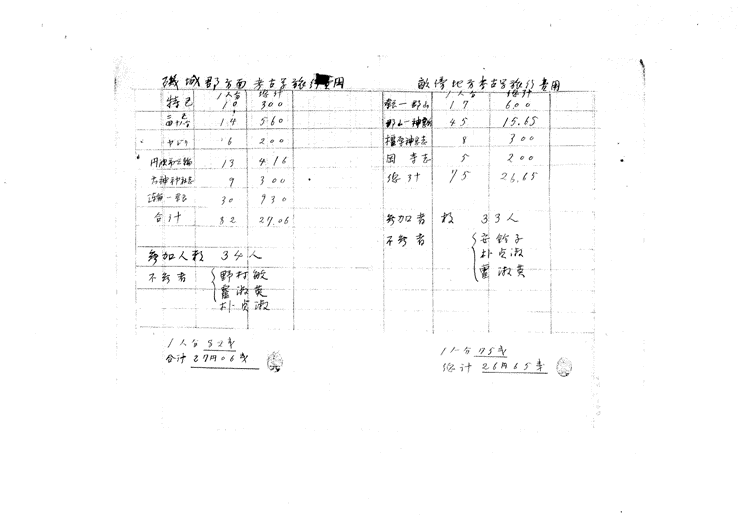 磯城郡方面考古学旅行費用
1人分 総計
特已 10 300
14 560
6 200
丹波市三輪 13 416
大神神社志 9 300
30 930
合計 82 27.06
参加人数 34人
不参者 野村敏
淑英
朴貞淑
1人分 82銭
合計 27円06銭
畝傍地方考古学旅行費用
1人分 総計
郡山 17 600
郡山一神宮 45 15.65
橿原神宮志 8 300
図 5 200
総計 75 26.65
参加者数 33人
不参者 安鈴子
朴貞淑
淑英
1人分 75銭
総計 26円65銭